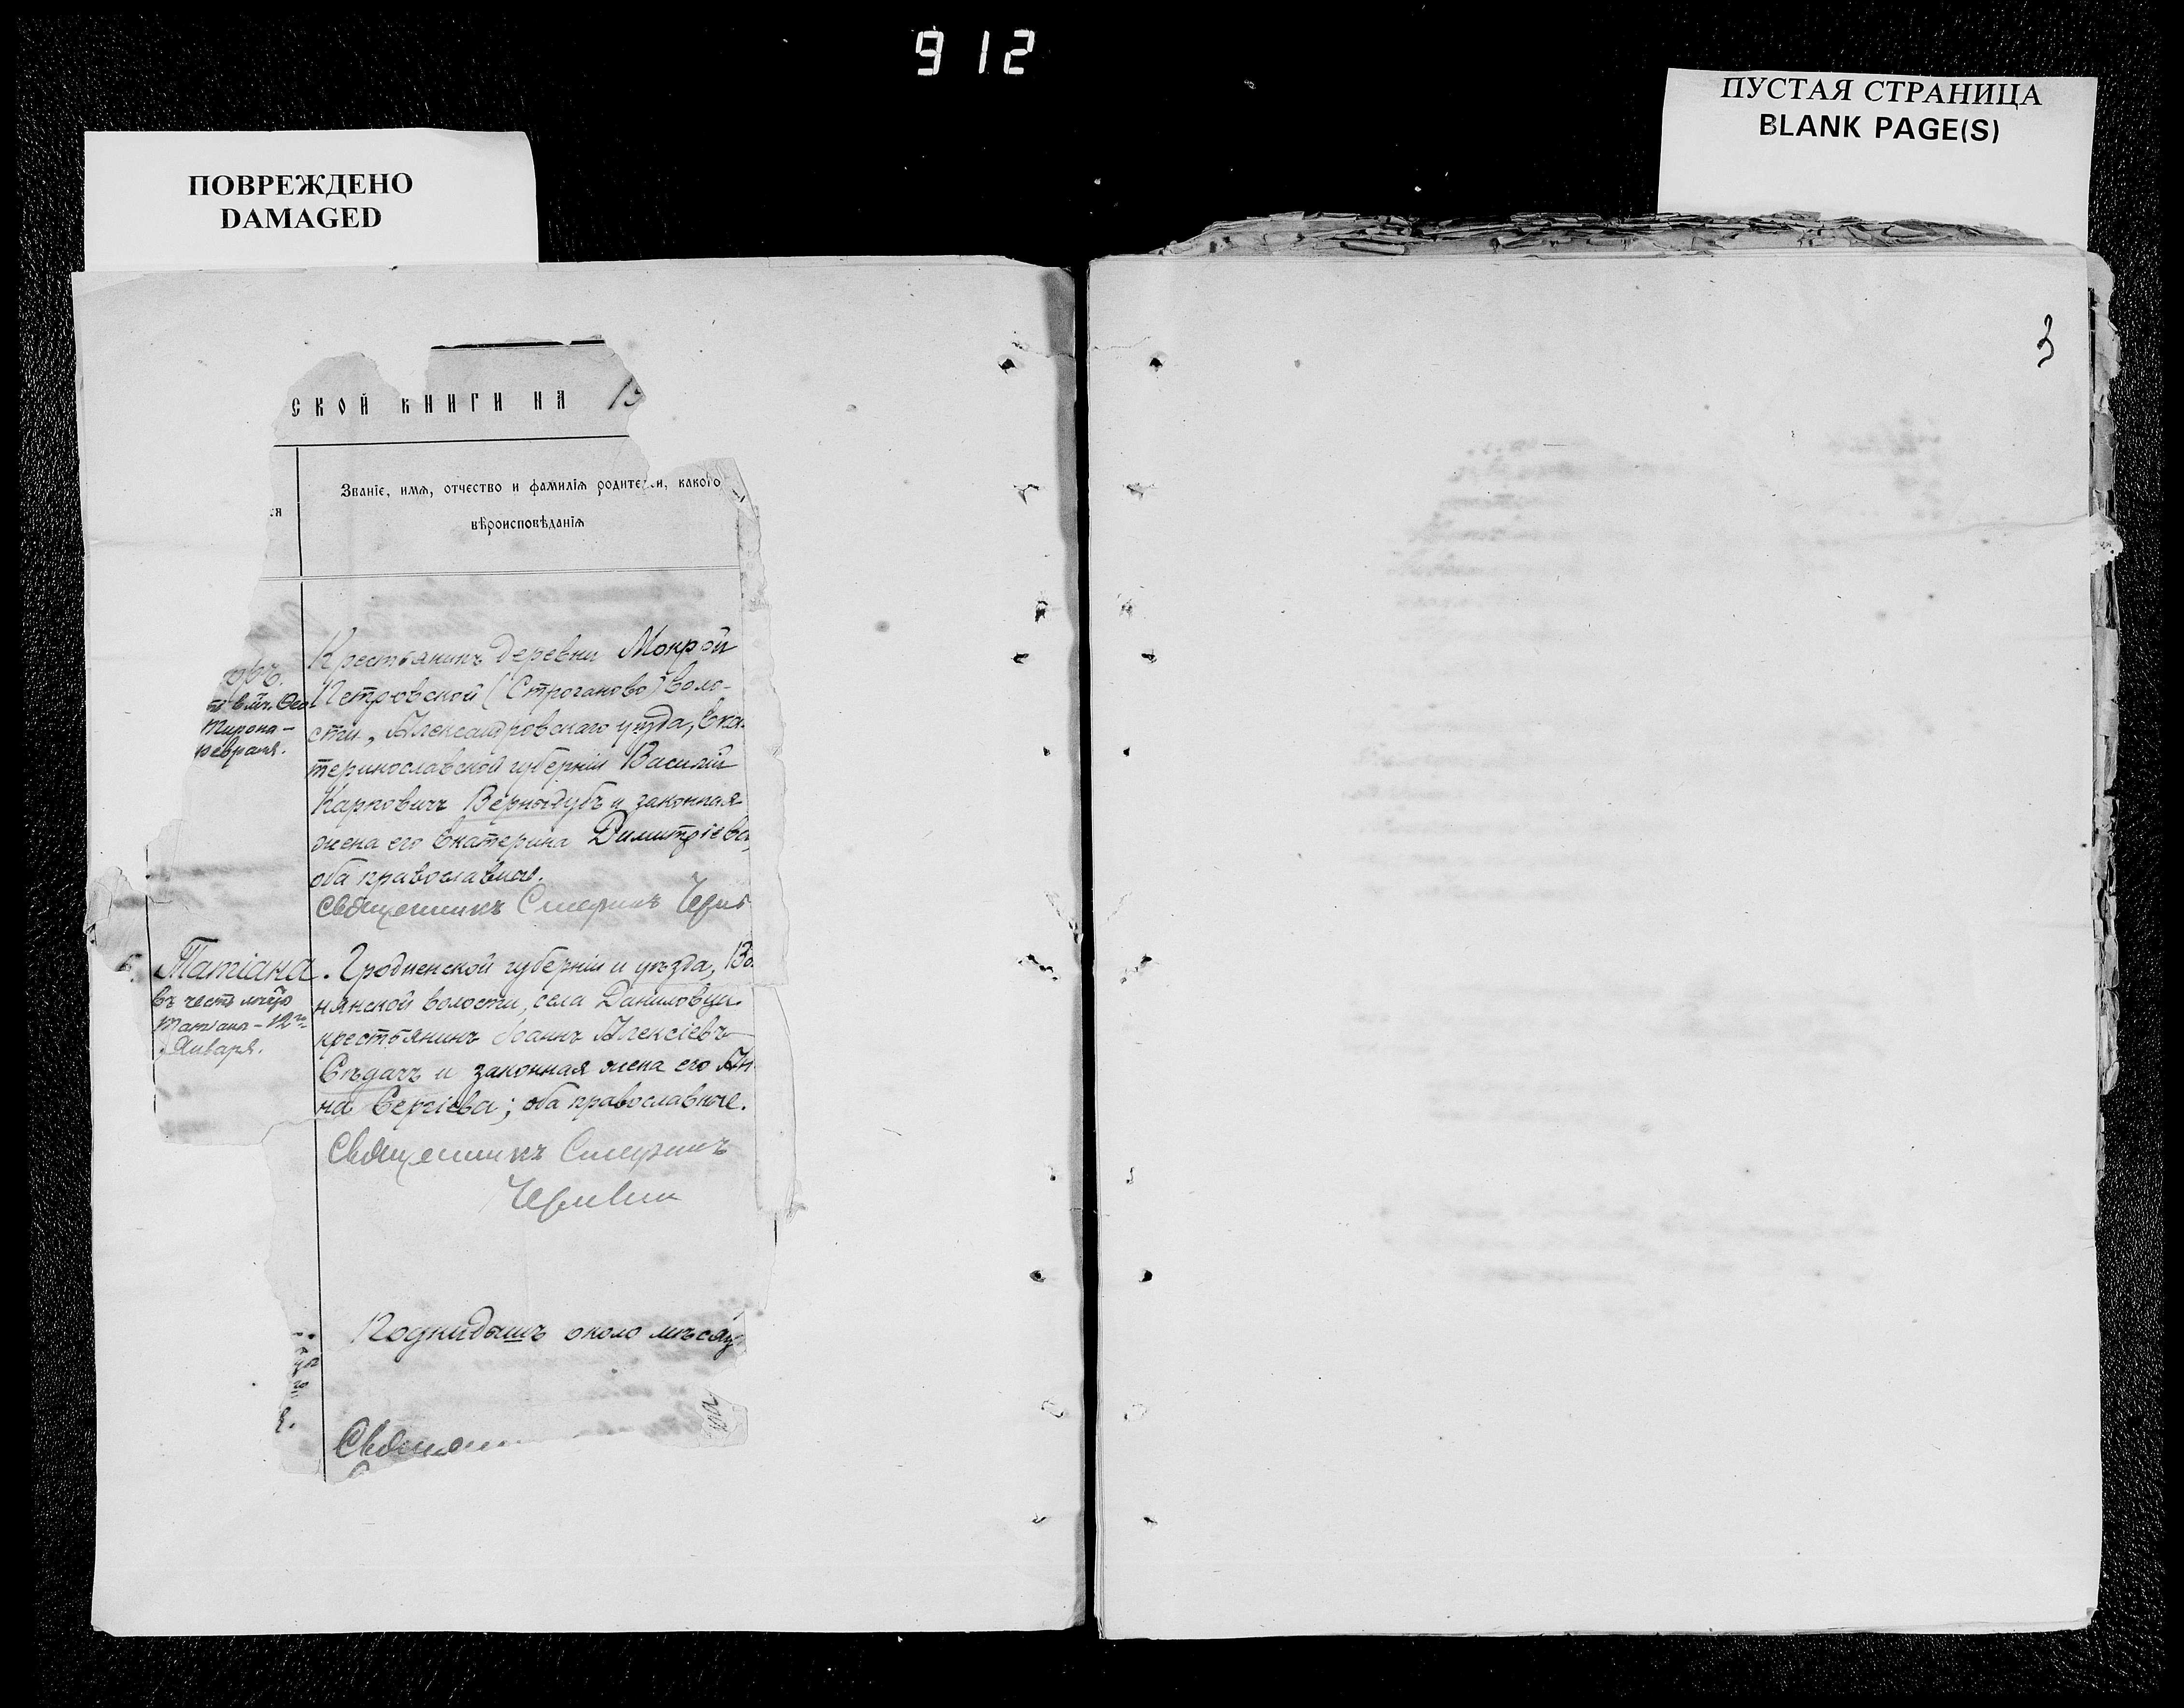 912
ПОВРЕЖДЕНО
DAMAGED
ПУСТАЯ СТРАНИЦА
BLANK PAGE(S)
СКОЙ КНИГИ НА
Званіе, имя, отчество и фамилія родителей, какого
вѣроисповѣданія
ся
Крестьянинъ деревни Мокрой
Петровской (Строганово) воло-
сти, Александровскаго уѣзда, Ека-
теринославской губерніи Василій
Карповичъ Вернидубъ и законная
жена его Екатерина Димитріева,
оба православные.
Священникъ
Тирона -
февраля.
Татіана
въ честь мч͠цы
Татіаны - 12го
Января.
. Гродненской губерніи и уѣзда, Во-
нянской волости, села Даниловцы
крестьянинъ Іоаннъ Алексіевъ
Сѣдачъ и законная жена его Ан-
на Сергіева; оба православные.
Священникъ
Подкидышъ около мѣсяц
3